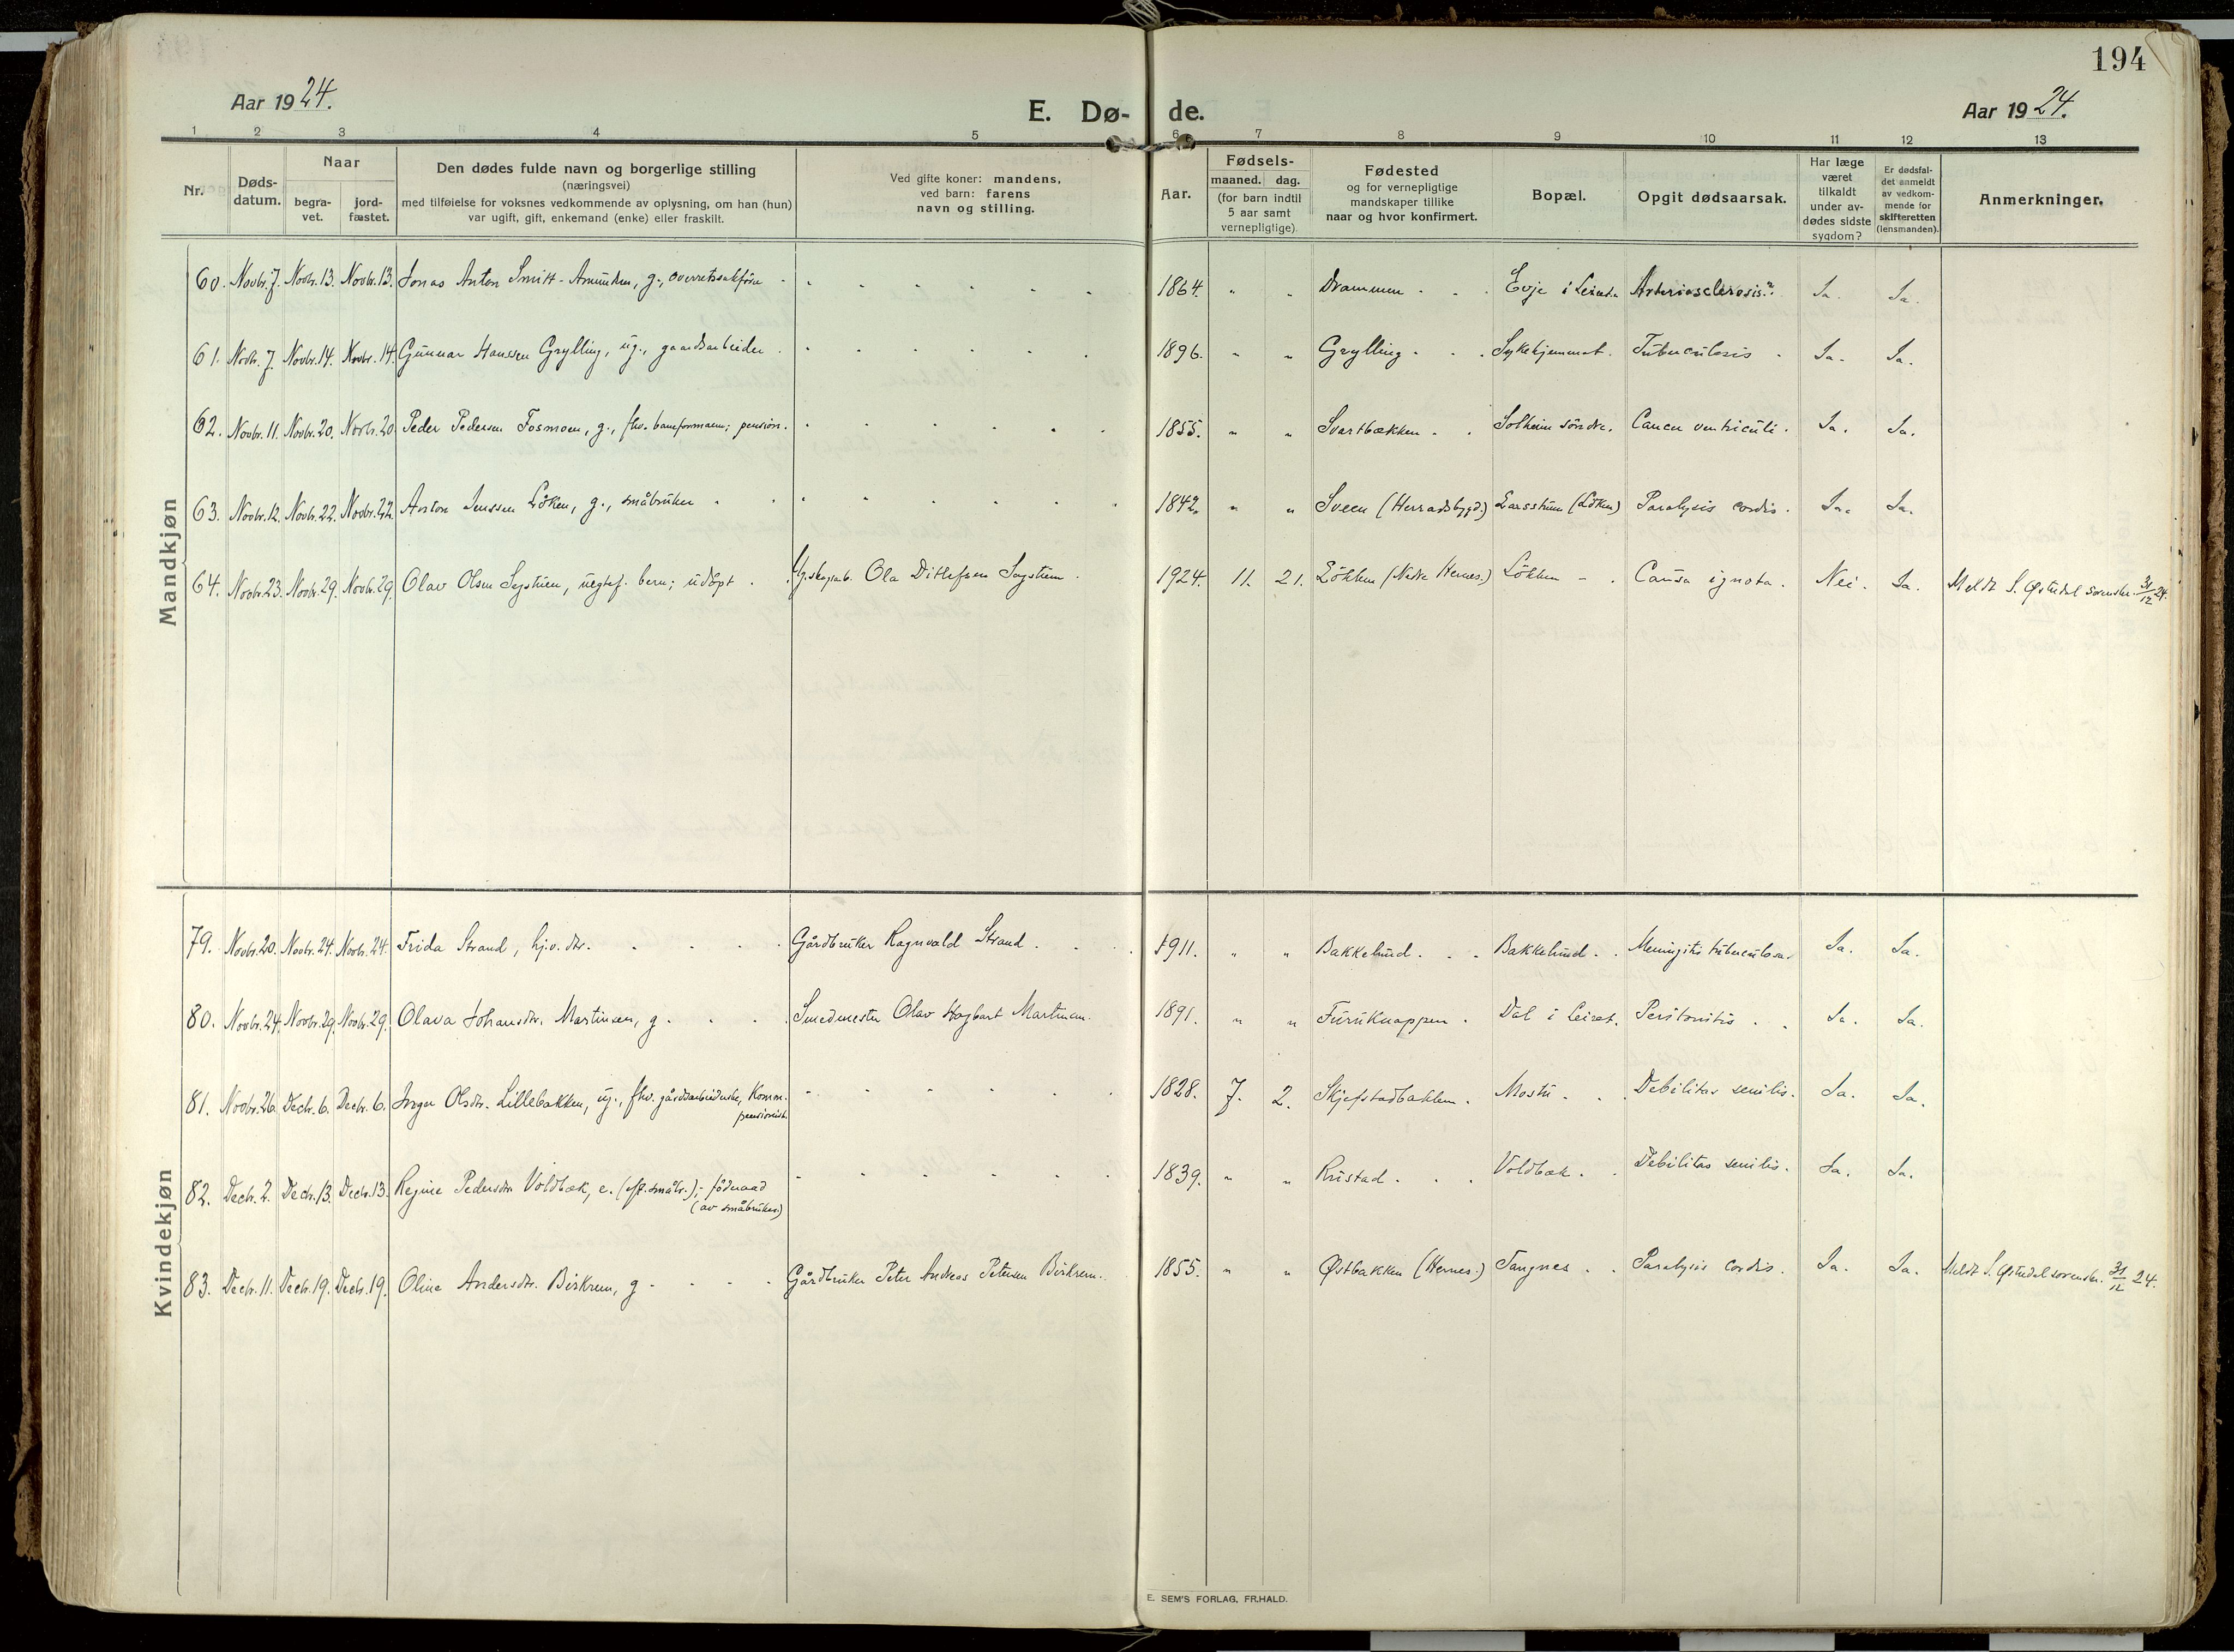 194
Aar 1924.
E. Dø- de.
Aar 1924.
1 2 3 4 5 6 7 8 9 10 11 12 13
Nr.
Døds-
datum.
Naar
begra-
vet.
jord-
fæstet.
Den dødes fulde navn og borgerlige stilling
(næringsvei)
med tilføielse for voksnes vedkommende av oplysning, om han (hun)
var ugift, gift, enkemand (enke) eller fraskilt.
Ved gifte koner: mandens,
ved barn: farens
navn og stilling.
Aar.
Fødsels-
maaned. dag.
(for barn indtil
5 aar samt
vernepligtige)
Fødested
og for vernepligtige
mandskaper tillike
naar og hvor konfirmert.
Bopæl.
Opgit dødsaarsak.
Har læge
været
tilkaldt
under av-
dødes sidste
sygdom?
Er dødsfal-
det anmeldt
av vedkom-
mende for
skifteretten
(lensmanden).
Anmerkninger.
Mandkjøn
60. Novbr. 7. Novbr. 13. Novbr. 13. Jonas Anton Smitt-Amundsen, g., overretssakfører 1864. " " Drammen. Evje i Leiret. Arteriosclerosis. Ja. Ja.
61. Novbr. 7. Novbr. 14. Novbr. 14. Gunnar Hanssen Grylling, ug., gaardsarbeider. 1896. " " Grylling. Sykehjemmet. Tuberculosis. Ja. Ja.
62. Novbr. 11. Novbr. 20. Novbr. 20. Peder Pedersen Fosmoen, g., fhv. baneformann; pension. 1855. " " Svartbækken. Solheim söndre. Cancer ventriculi. Ja. Ja.
63. Novbr. 12. Novbr. 22. Novbr. 22. Anton Jenssen Löken, g., småbruker. 1842. " " Sveen (Herradsbygd.) Larsstuen (Löken) Paralysis cordis. Ja. Ja.
64. Novbr. 23. Novbr. 29. Novbr. 29. Olav Olsen Sagstuen, uegtef. barn; udöpt. Ola Ditlefsen Sagstuen. 1924. 11. 21. Lökken (Nedre Hernes.) Lökken. Causa ignota. Nei. Ja. Meldt S. Østerdal sorenskr. 31/12 24.
Kvindekjøn
79. Novbr. 20. Novbr. 24. Novbr. 24. Frida Strand, hjv. dtr. Gårdbruker Ragnvald Strand. 1911. " " Bakkelund. Bakkelund. Meningitis tuberculosa. Ja. Ja.
80. Novbr. 24. Novbr. 29. Novbr. 29. Olava Johansdtr. Martinsen, g. Smedmester Olav Hagbart Martinsen. 1891. " " Furuknappen. Dal i Leiret. Peritonitis. Ja. Ja.
81. Novbr. 26. Decbr. 6. Decbr. 6. Inger Olsdtr. Lillebakken, ug., fhv. gårdsarbeiderske, Komm.
pensionist.
1828. 7. 2. Skjefstadbakken. Mostu. Debilitas senilis. Ja. Ja.
82. Decbr. 2. Decbr. 13. Decbr. 13. Regine Pedersdtr. Voldbæk, e. (eft. småbr.); föderaad
(av småbruker)
1839. " " Rustad. Voldbæk. Debilitas senilis. Ja. Ja.
83. Decbr. 11. Decbr. 19. Decbr. 19. Oline Andersdtr. Birkrem, g. Gårdbruker Peter Andreas Petersen Birkrem. 1855. " " Østbakken (Hernes.) Tangnes. Paralysis cordis. Ja. Ja. Meldt S. Østerdal sorenskr. 31/12 24.
E. SEM'S FORLAG, FR.HALD.